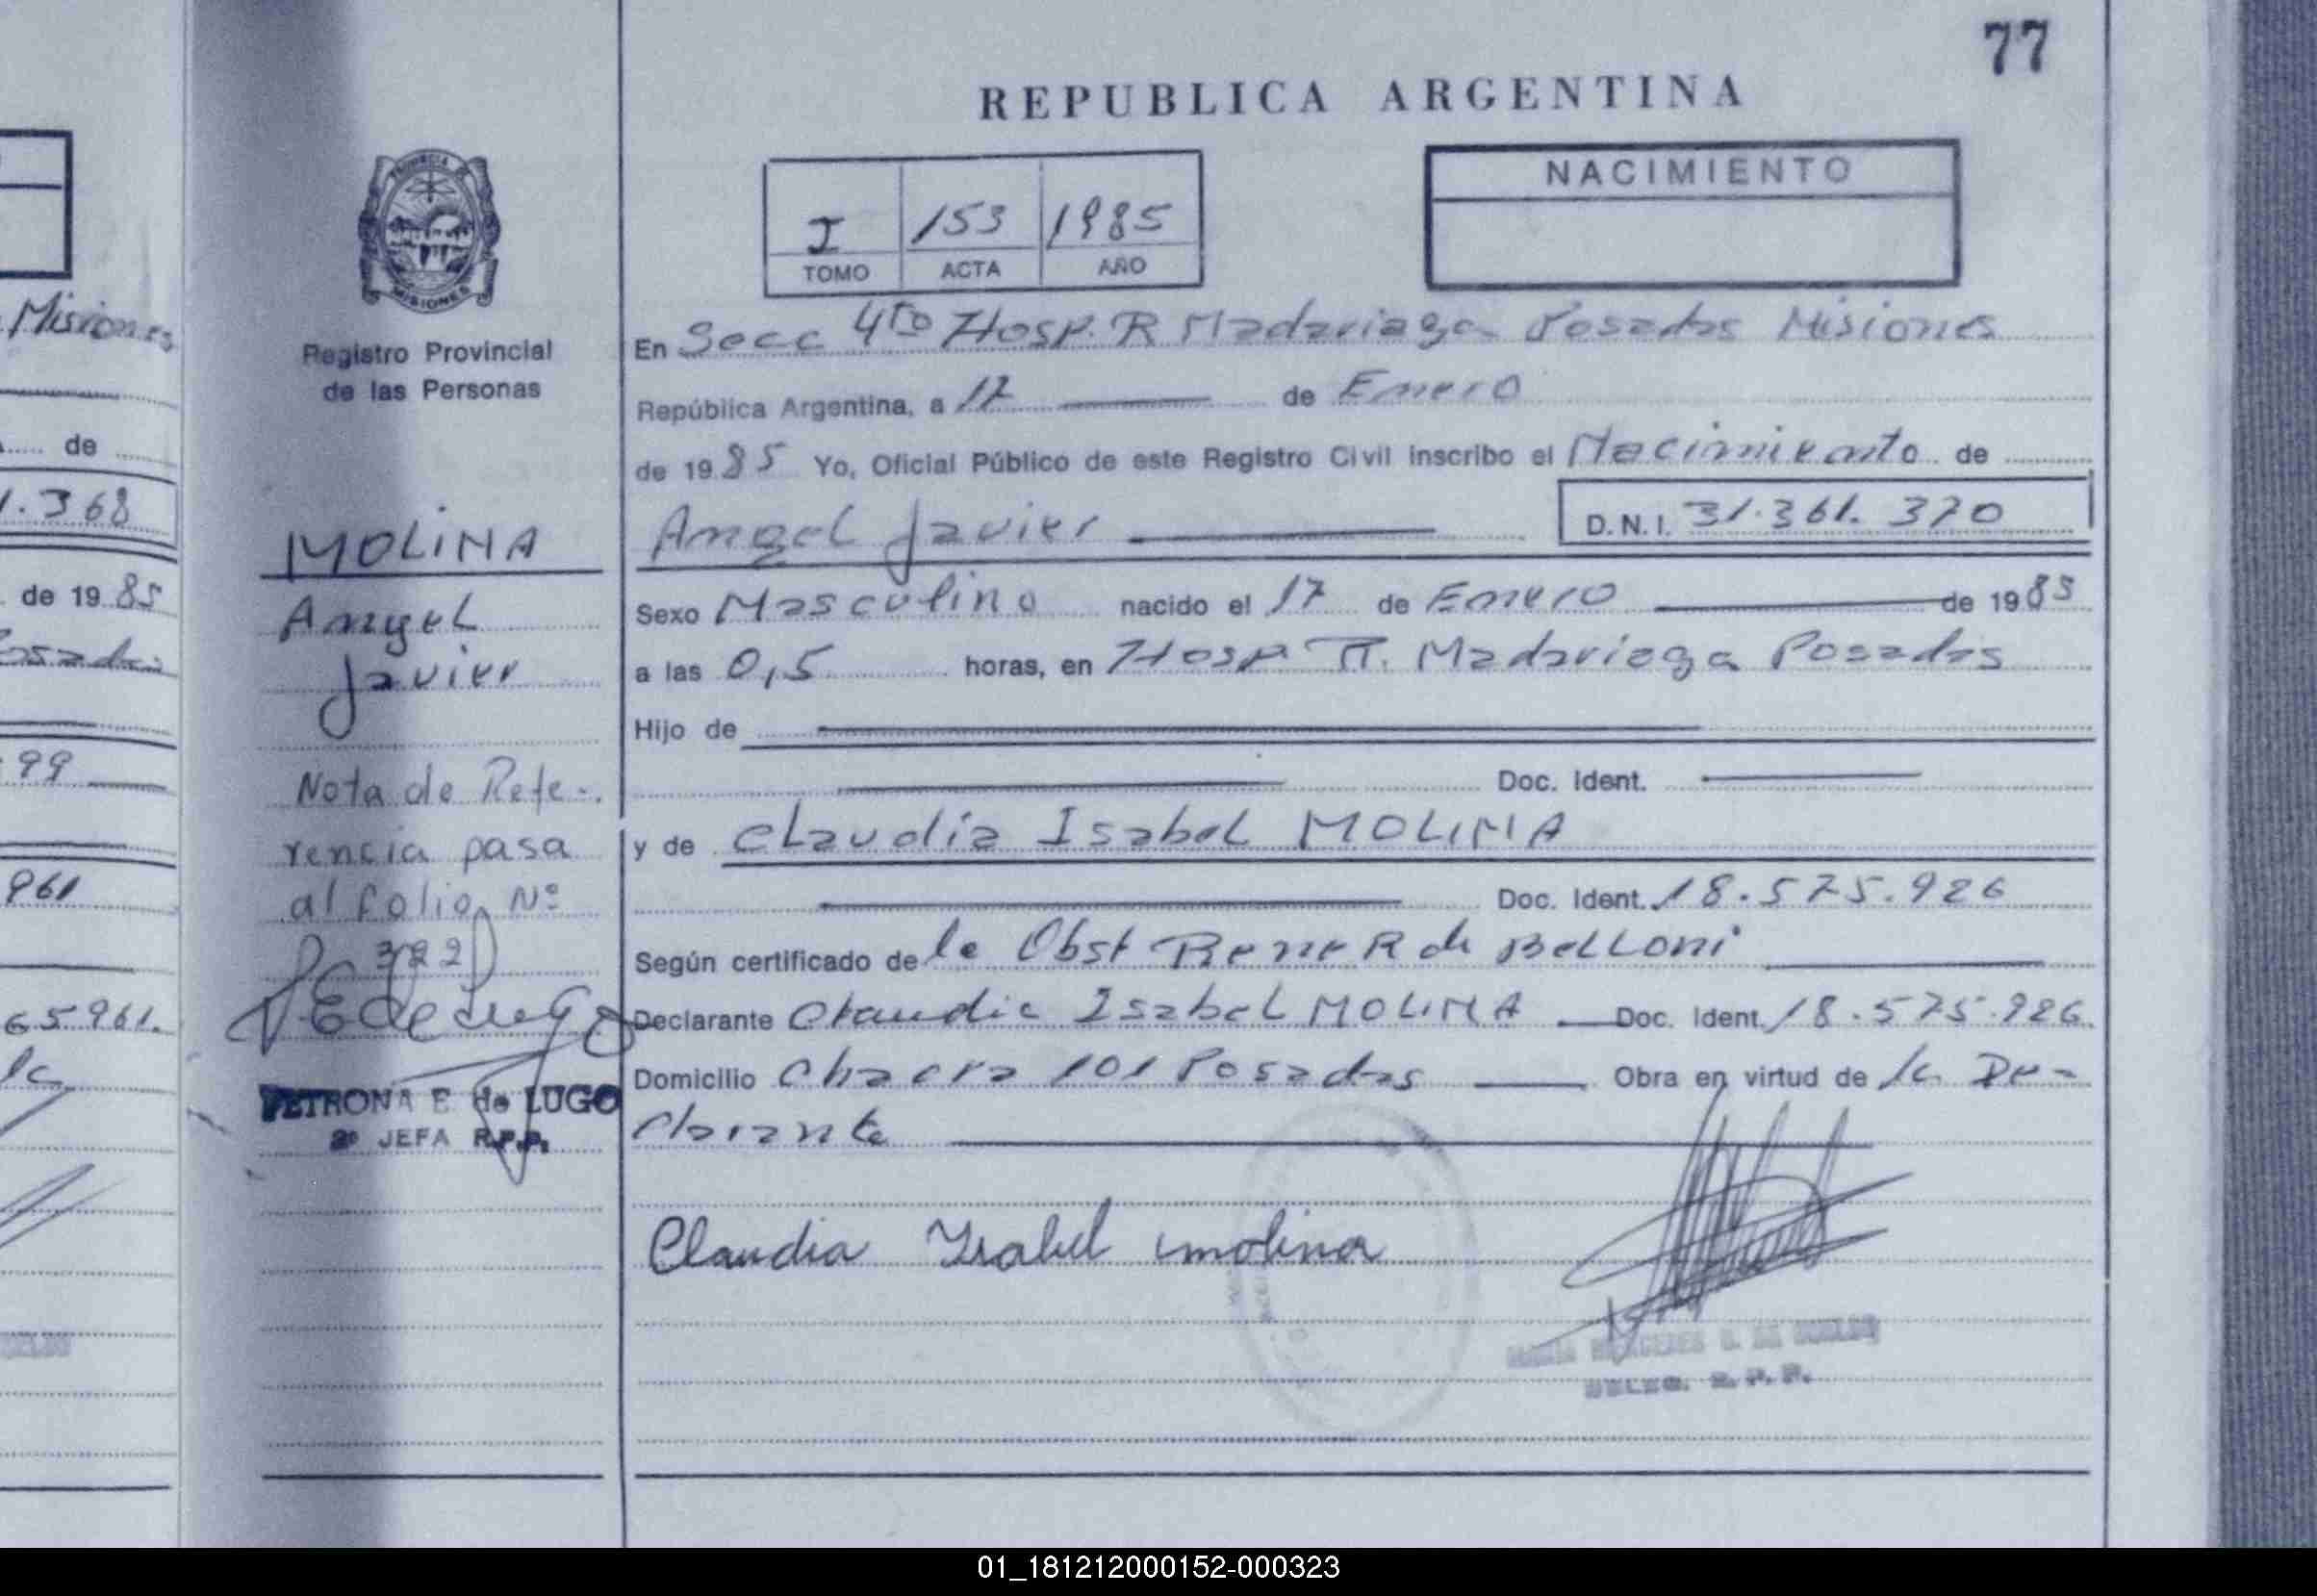 77
REPUBLICA ARGENTINA
NACIMIENTO
I 153 1985
TOMO ACTA AÑO
PROVINCIA DE
MISIONES
Registro Provincial
de las Personas
MOLINA
Angel
Javier
Nota de Refe-
rencia pasa
al folio Nº
322
PETRONA E de LUGO
2º JEFA R.P.P.
En Secc 4to Hosp. R Madariaga Posadas Misiones
República Argentina, a 17 de Enero
de 1985 Yo, Oficial Público de este Registro Civil inscribo el Nacimiento de
Angel Javier D.N.I. 31.361.370
Sexo Masculino nacido el 17 de Enero de 1985
a las 0,5 horas, en Hosp R. Madariaga Posadas
Hijo de
Doc. Ident.
y de Claudia Isabel MOLINA
Doc. Ident. 18.575.926
Según certificado de la Obst Rene R de Belloni
Declarante Claudia Isabel MOLINA Doc. Ident. 18.575.926.
Domicilio Chacra 101 Posadas Obra en virtud de la De-
clarante
Claudia Isabel molina
DELEG. R.P.P.
Misiones
de
1.368
de 1985
Posadas
99
961
65961.
la
01_181212000152-000323